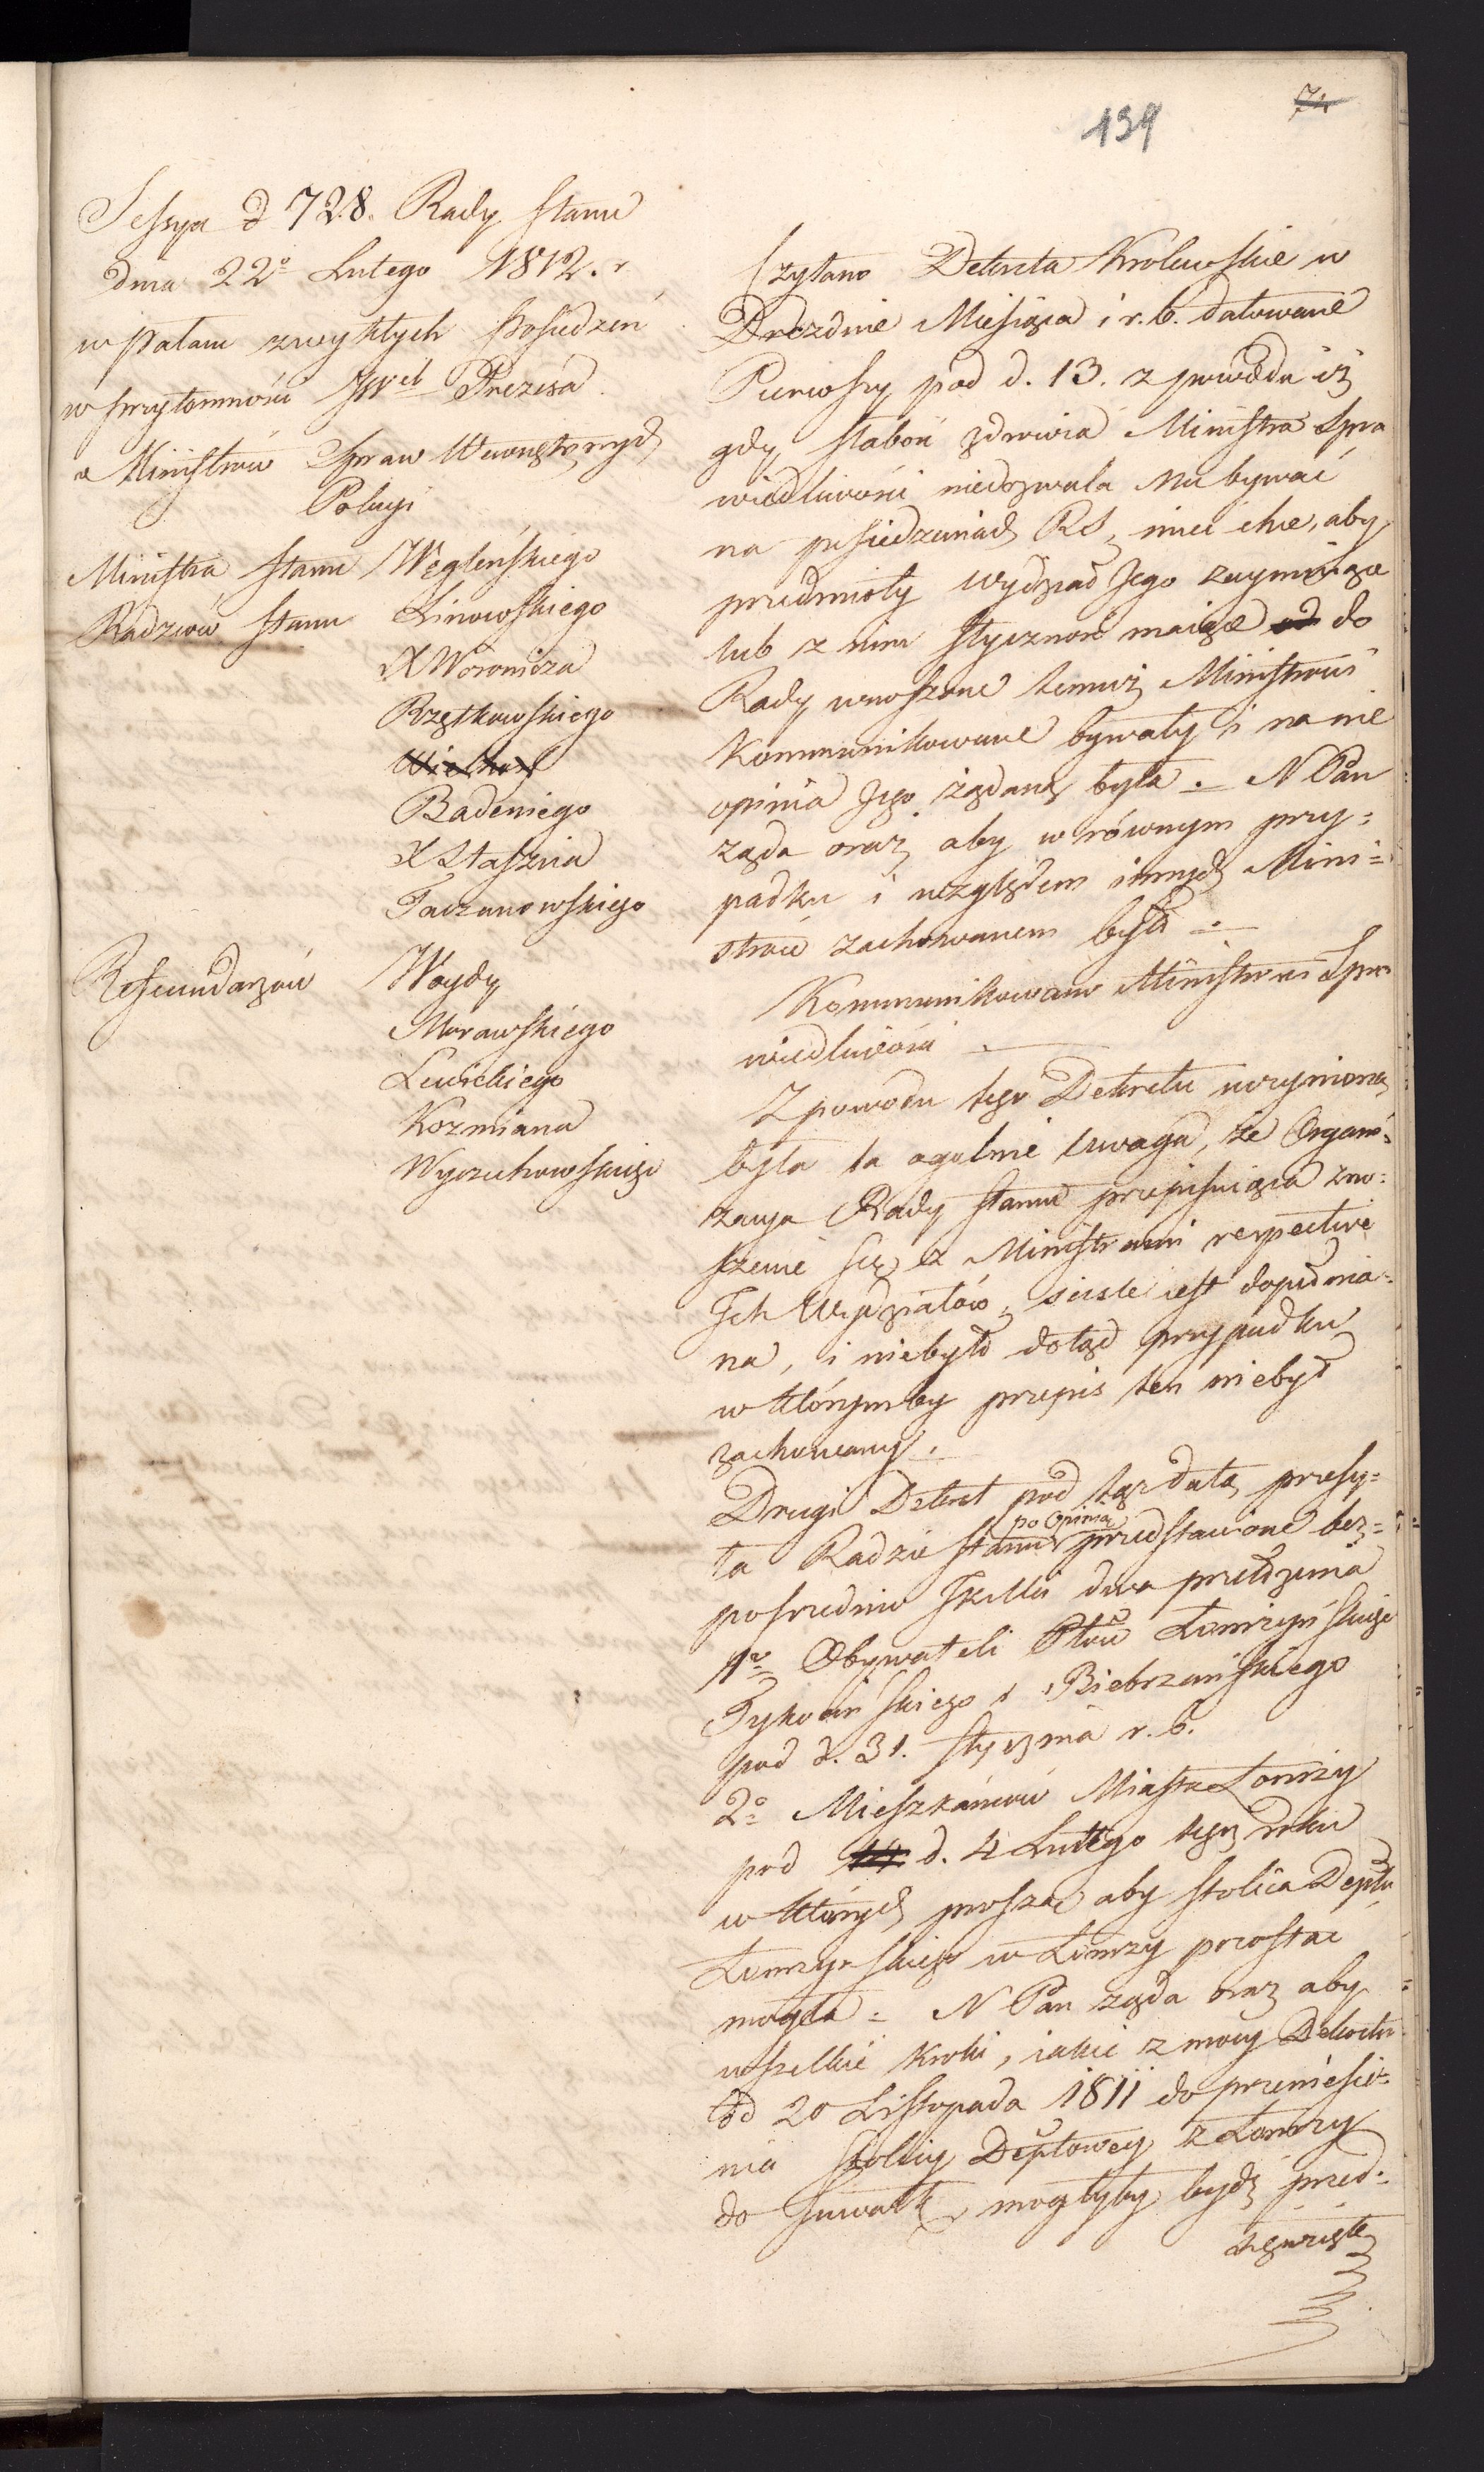 139
74
Sessya d 728. Rady Stanu
dnia 22º Lutego 1812. r
w Pałacu zwykłych Posiedzeń
w przytomności JWch Prezesa
a Ministrów Spraw Wewnętrznych
Policyi
Ministra Stanu Węgleńskiego
Radzców Stanu Linowskiego
X Woronicza
Rzętkowskiego
Badeniego
X Staszica
Taczanowskiego
Referendarzów Woydy
Morawskiego
Lewickiego
Kozmiana
Wyczechowskiego
Czytano Dekreta Krolewskie w
Dreźdnie Miesiąca i r. b. datowane
Pierwszy pod d. 13. z powodu iż
gdy słabość zdrowia Ministra Spra
wiedliwości niedozwala Mu bywać
na posiedzeniach RS, mieć chce, aby
przedmioty wydział Jego zaymuiące
lub z nim styczność maiące do
Rady wnoszone temuż Ministrowi
Kommunikowane bywały i na nie
opinia Jego żądaną była. — N Pan
ząda oraz aby w równym przy=
padku i względem innych Mini=
strów zachowanem było —
Kommunikowano Ministrowi Spra
wiedliwości —
Z powodu tego Dekretu uczyniona
była ta ogolnie uwaga, że Organi=
zacya Rady Stanu przepisuiąca zno=
szenie się z Ministrami respective
Ich Wydziałów, scisle iest dopełnia=
na, i niebyło dotąd przypadku
w którymby przepis ten niebył
zachowany.
Drugi Dekret pod tąż datą przesy=
po Opinią
ła Radzie Stanu przedstawione bez=
posrednio JKMci dwa przełożenia
1º Obywateli Pttów Łomżyńskiego
Tykocińskiego i Biebrzańskiego
pod d. 31. Stycznia r. b.
2º Mieszkańców Miasta Łomży
pod d. 4 Lutego tegoż roku
w których proszą aby stolica Deptu
Łomżyńskiego w Łomży pozostać
mogła — N Pan ząda oraz aby
wszelkie kroki, iakie z mocy Dekretu
od 20 Listopada 1811 do przeniesie=
nia Stolicy Deptowey z Łomży
do Suwałk mogłyby bydź przed=
sięwzięte